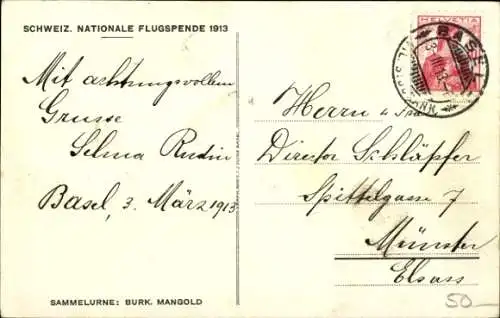 SCHWEIZ. NATIONALE FLUGSPENDE 1913
HELVETIA
BASEL
Mit achtungsvollen
Grusse
Selma Rudin
Basel, 3. März 1913
Herrn u
Director Schläpfer
Spittelgasse 7
Münster
Elsass
SAMMELURNE: BURK. MANGOLD
50